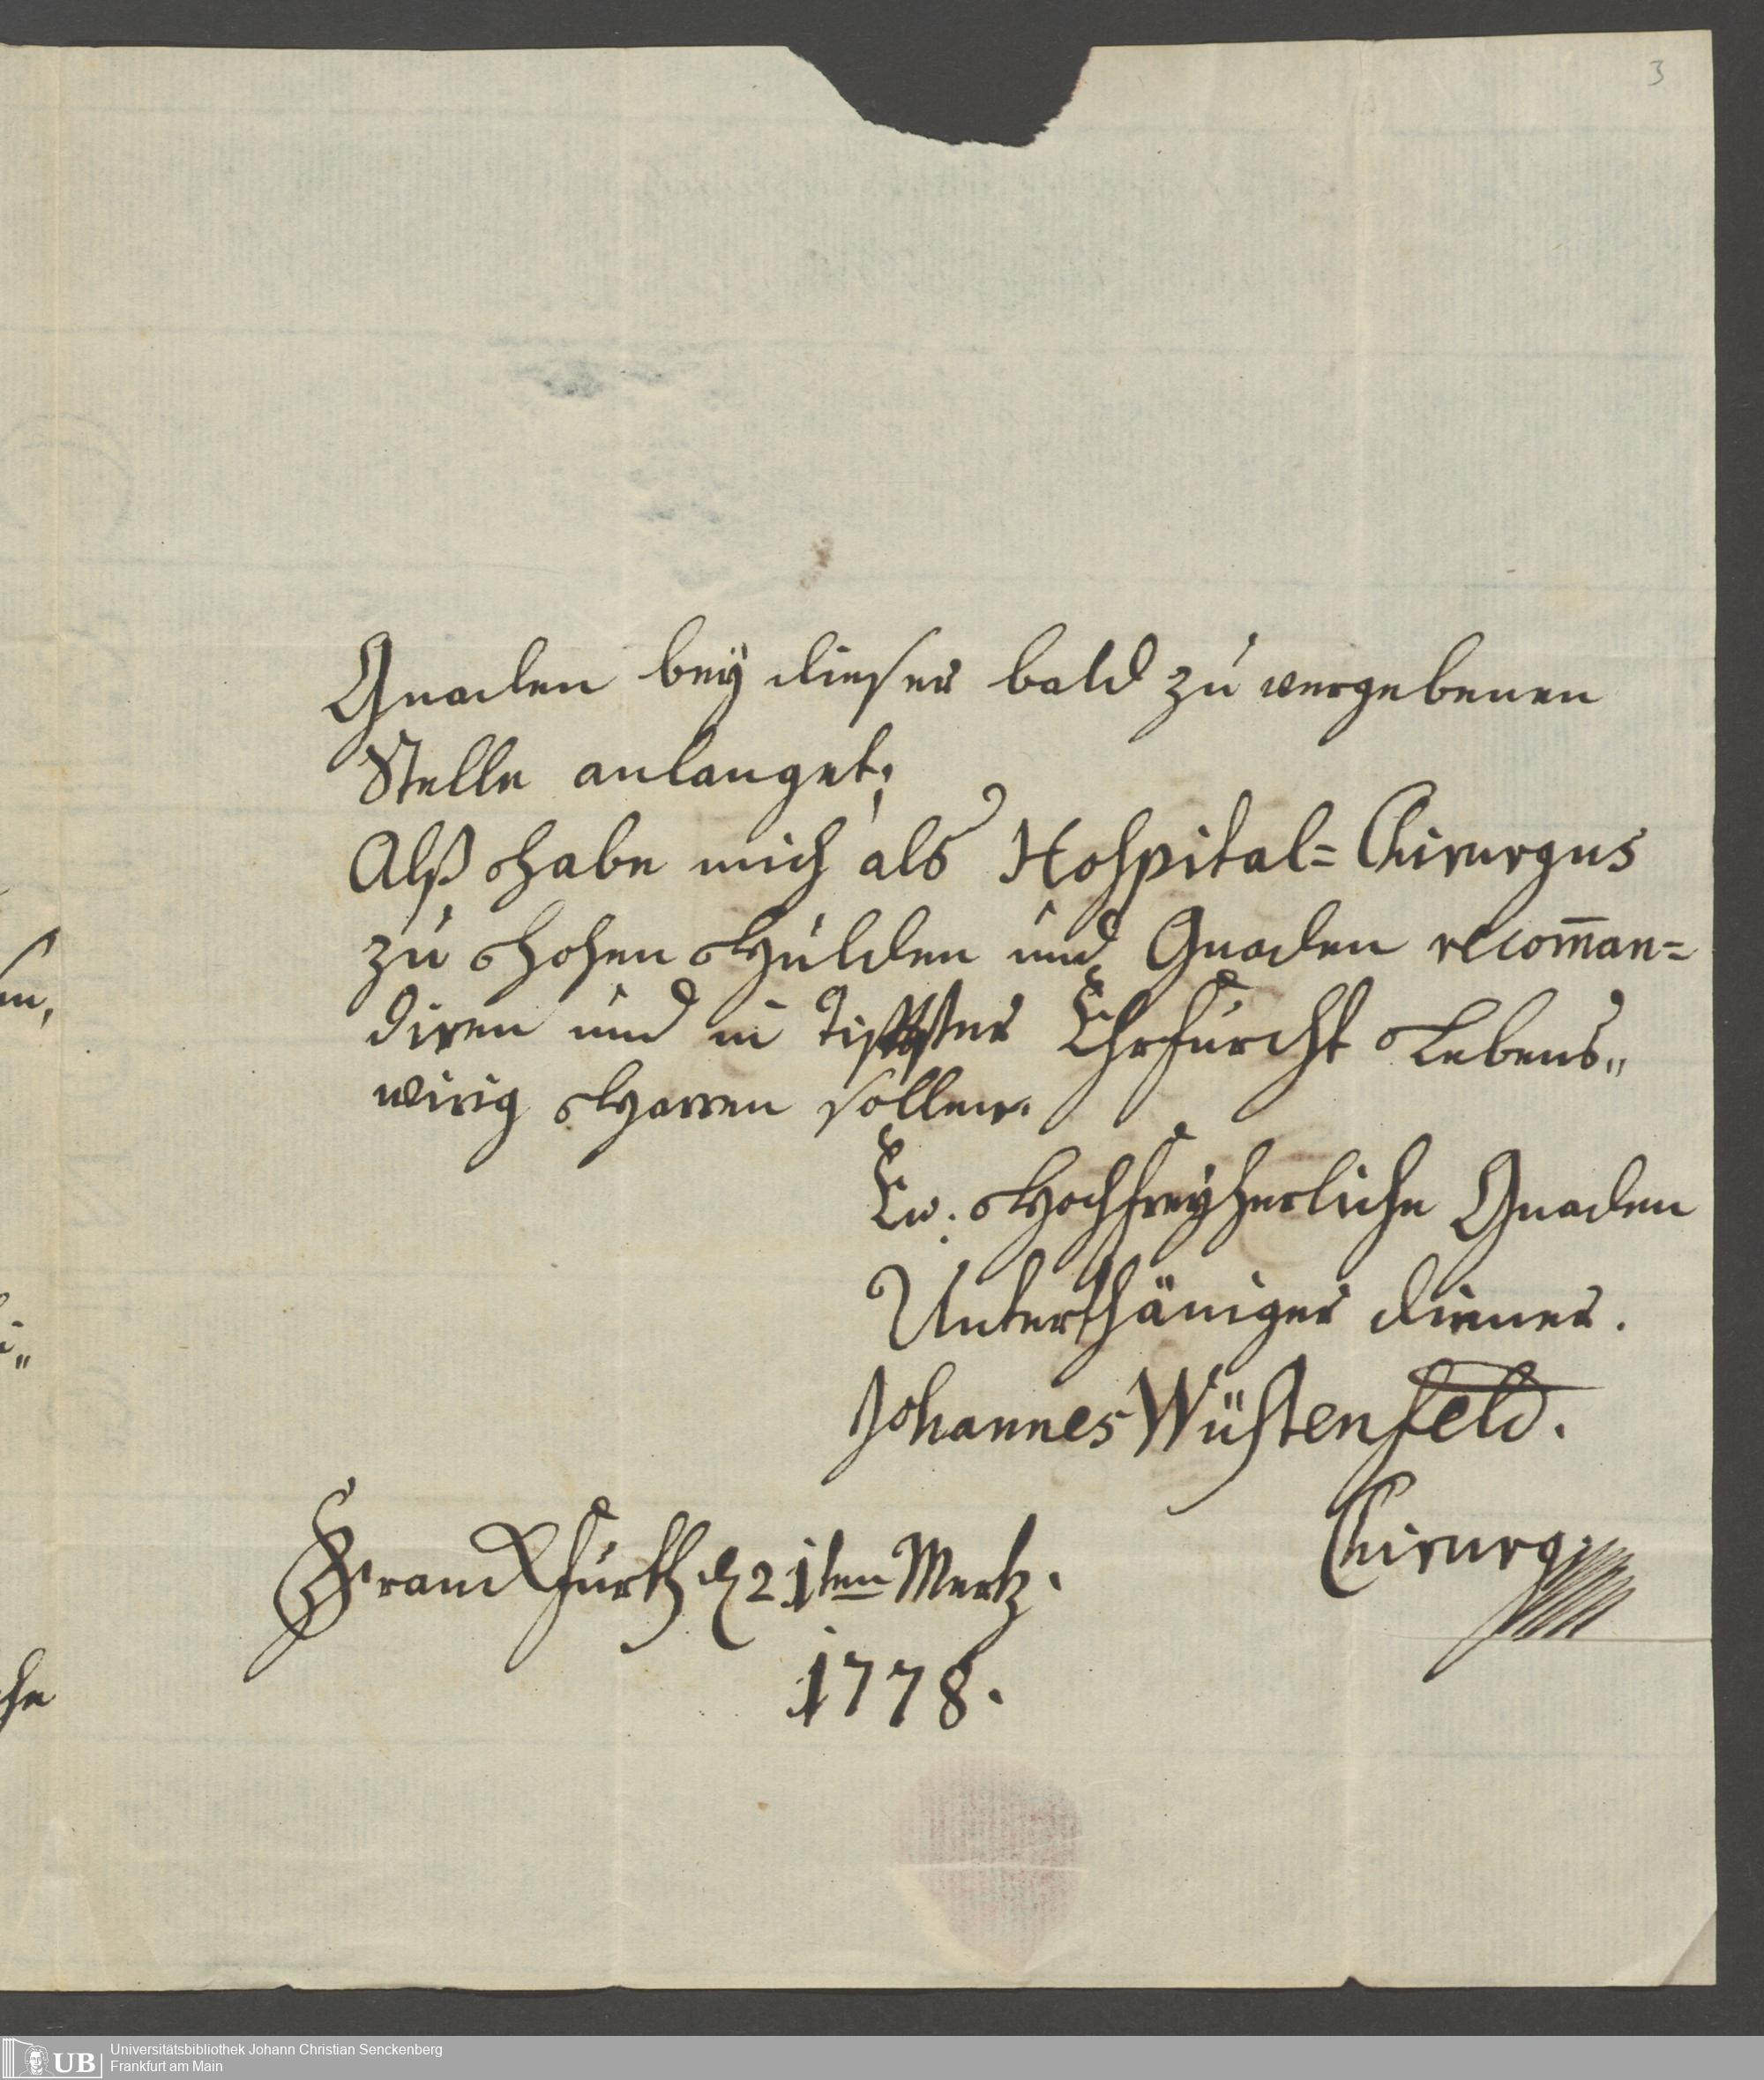 3
Gnaden bey dieser bald zu vergebenen
Stelle anlanget;
Alß habe mich als Hospital= Chirurgus
zu Hohen Hulden und Gnaden recom̄an=
diren und in Tiffster Ehrfurcht Lebens„
wirig Harren sollen.
Ew. Hochfreyherliche Gnaden
Unterthäniger diener.
Johannes Wüstenfeld.
Chirurg:
Franckfurth d 21ten Mertz.
1778.
UB
Universitätsbibliothek Johann Christian Senckenberg
Frankfurt am Main